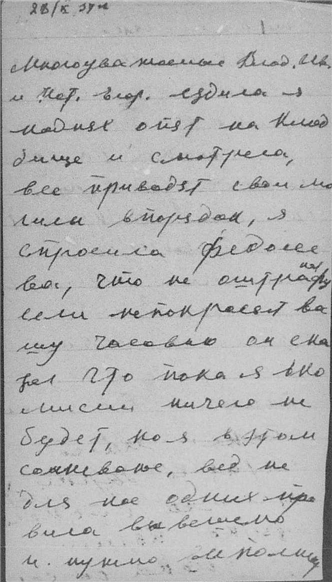 28/V 34 г
Многоуважаемые Влад. Ив.
и Кат. Егор. ездила я
наднях опят на Клад
бище и смотрела,
все приводят свои мо
гили впорядок, я
спросила Федосее
ва, что не оштрафу
если непокрасят ва
шу часовью он ска
зал что пока я в ко
мисии ничего не
будет, но я в этом
сомневаюс, вед не
для нас одних пра
вила вывешено
и нужно исполни